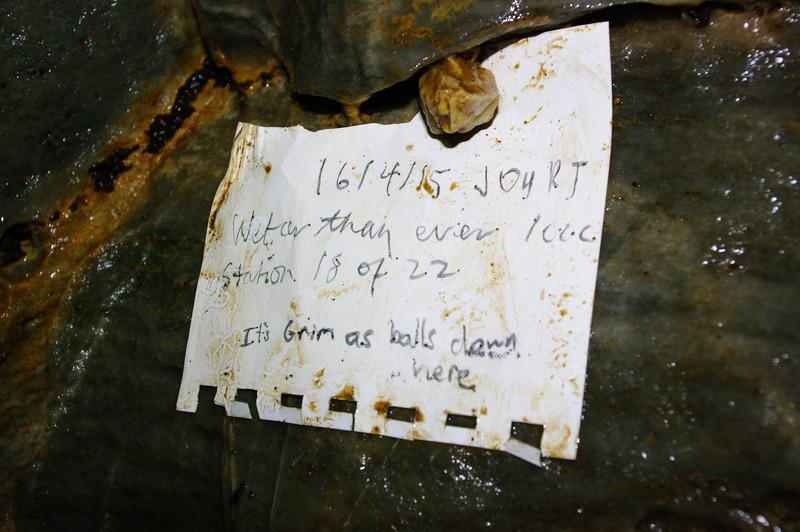 16/4/15 JOY RJ
Wetter than ever
Station 18 of 22
It's Grim as balls down
here